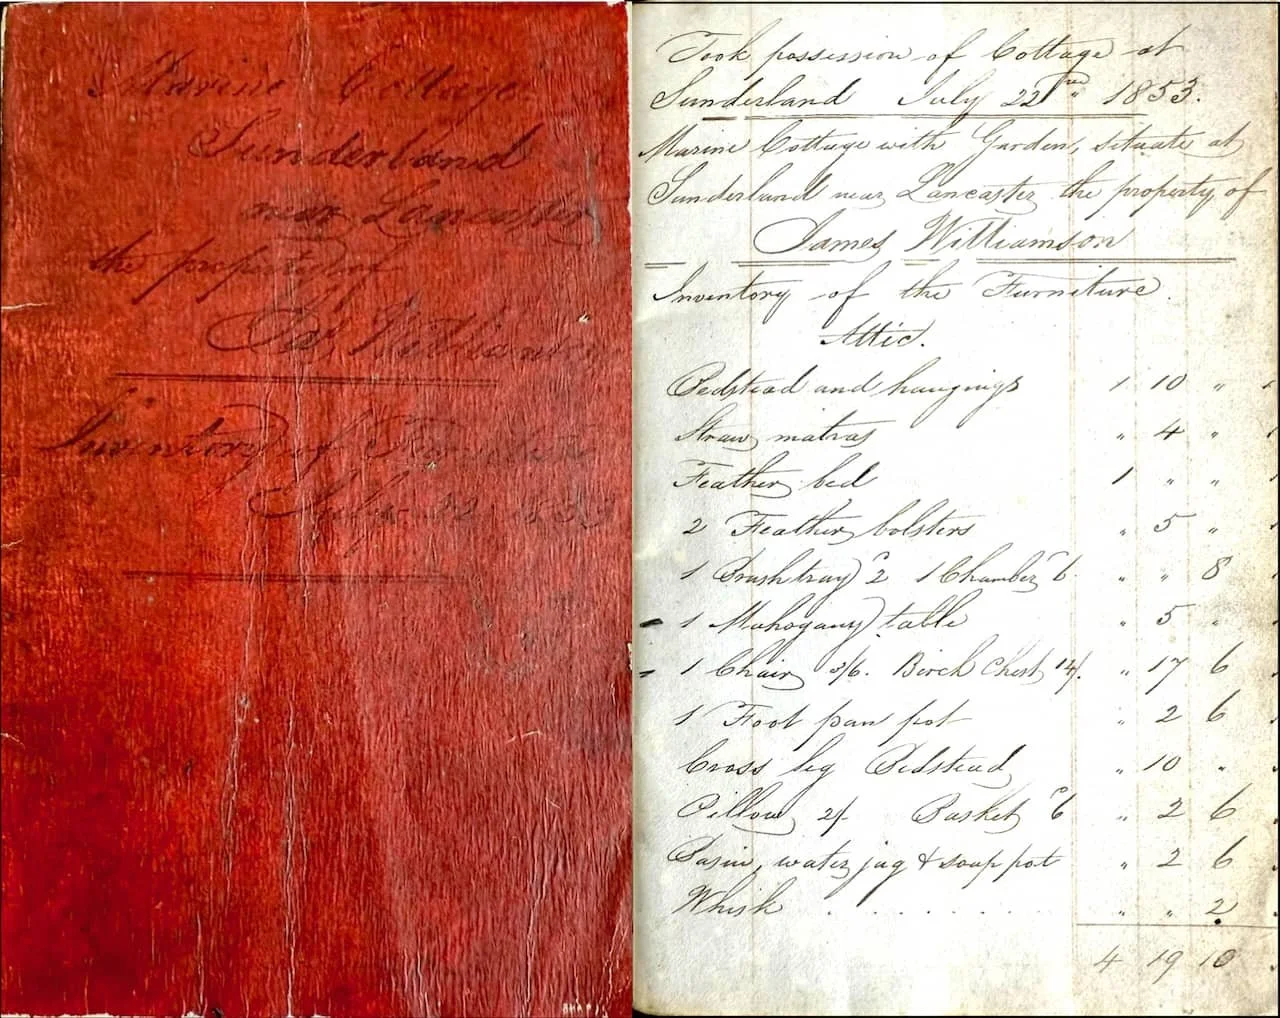 Marine Cottage
Sunderland
near Lancaster
the property of
Jas Williamson
Inventory of Furniture
July 22 1853
Took possession of Cottage at
Sunderland July 22nd 1853.
Marine Cottage with Garden, situate at
Sunderland near Lancaster the property of
James Williamson
Inventory of the Furniture.
Attic.
Bedstead and hangings 1 10 "
Straw matras " 4 "
Feather bed 1 " "
2 Feather bolsters " 5 "
1 Brush tray 2 1 Chamber 6 " " 8
1 Mahogany table " 5 "
1 Chair 3/6. Birch Chest 14/. " 17 6
1 Foot pan pot " 2 6
Cross leg Bedstead " 10 "
Pillow 2/- Basket 6 " 2 6
Basin, water jug & soap pot " 2 6
Whisk . . . . . . . " " 2
4 19 10